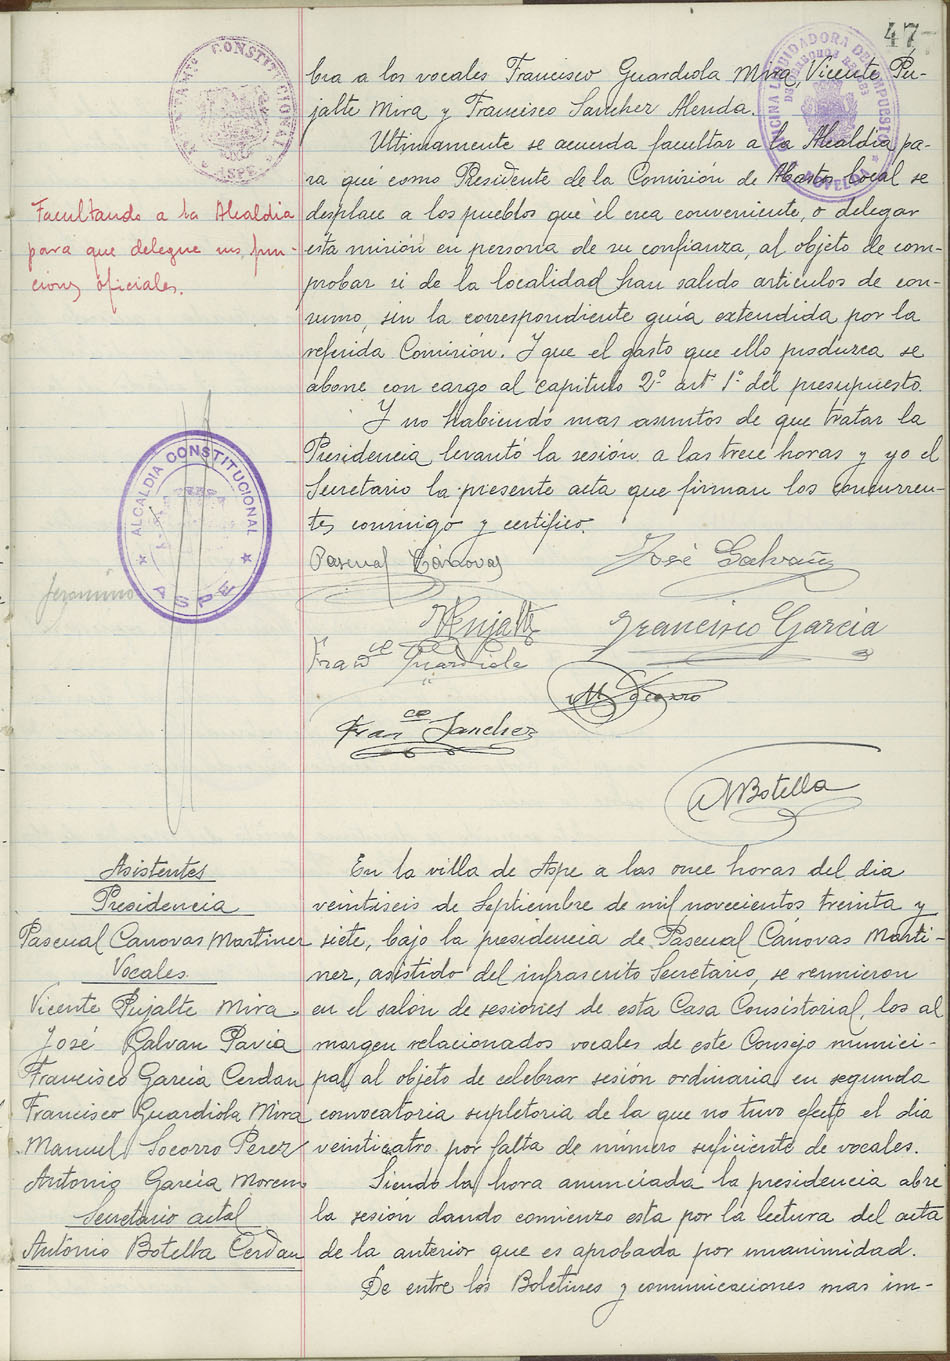 47
AYUNTAMTO CONSTITUCIONAL
ASPE
OFICINA LIQUIDADORA DEL IMPUESTO
DE DERECHOS REALES
NOVELDA
bra a los vocales Francisco Guardiola Mira, Vicente Pu-
jalte Mira y Francisco Sanchez Alenda.
Ultimamente se acuerda facultar a la Alcaldia pa-
ra que como Presidente de la Comisión de Abastos Local se
desplace a los pueblos que él crea conveniente, o delegar
esta misión en persona de su confianza, al objeto de com-
probar si de la localidad han salido articulos de con-
sumo, sin la correspondiente guia extendida por la
referida Comisión. Y que el gasto que ello produzca se
abone con cargo al capitulo 2º artº 1º del presupuesto.
Y no habiendo mas asuntos de que tratar la
Presidencia levantó la sesión a las trece horas y yo el
Secretario la presente acta que firman los concurren-
tes conmigo y certifico.
Facultando a la Alcaldia
para que delegue sus fun-
ciones oficiales.
ALCALDIA CONSTITUCIONAL
ASPE
Jeronimo
Pascual Cánovas
José Galvañ
VPujalte
Francisco Garcia
Franco Guardiola
M Socorro
Franco Sanchez
A Botella
Asistentes
Presidencia
Pascual Canovas Martinez
Vocales
Vicente Pujalte Mira
José Galvan Pavia
Francisco Garcia Cerdan
Francisco Guardiola Mira
Manuel Socorro Perez
Antonio Garcia Moreno
Secretario actal
Antonio Botella Cerdan
En la villa de Aspe a las once horas del dia
veintiseis de Septiembre de mil novecientos treinta y
siete, bajo la presidencia de Pascual Cánovas Marti-
nez, asistido del infrascrito Secretario, se reunieron
en el salón de sesiones de esta Casa Consistorial, los al
margen relacionados vocales de este Consejo munici-
pal, al objeto de celebrar sesión ordinaria en segunda
convocatoria supletoria de la que no tuvo efecto el dia
veinticatro por falta de número suficiente de vocales.
Siendo la hora anunciada la presidencia abre
la sesión dando comienzo esta por la lectura del acta
de la anterior que es aprobada por unanimidad.
De entre los Boletines y comunicaciones mas im-